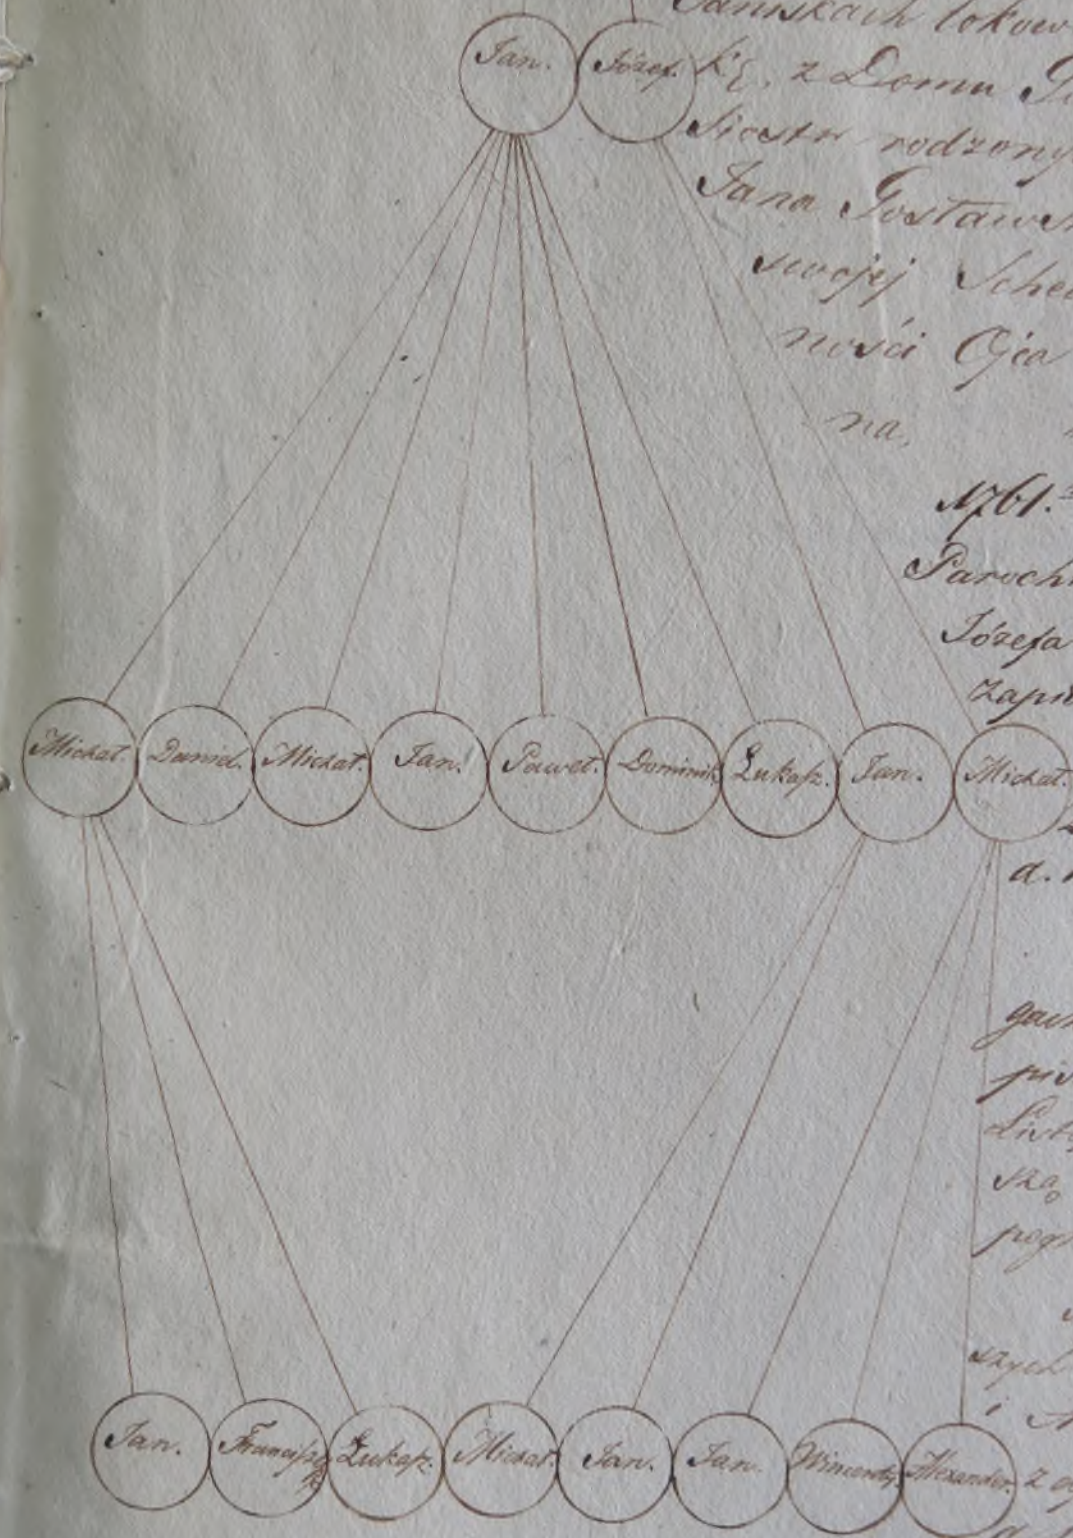 Janiskach lokow
Jan.
Józef.
z Domu
Siostr rodzony
Jana Gostaws
swojej Sched
ności Ojca
na.
1761.
Paroch
Józefa
Zapis
Michał.
Daniel.
Michał.
Jan.
Paweł.
Dominik
Łukasz.
Jan.
Michał.
d.
gów
szą
pog
szych
i
Jan.
Franciszek
Łukasz.
Michał.
Jan.
Jan.
Wincenty.
Alexander.
z